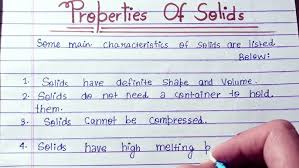 Properties Of Solids
Some main characteristics of solids are listed
Below:
1. Solids have definite Shape and Volume.
2. Solids do not need a container to hold
them.
3. Solids Cannot be Compressed.
4. Solids have high melting p